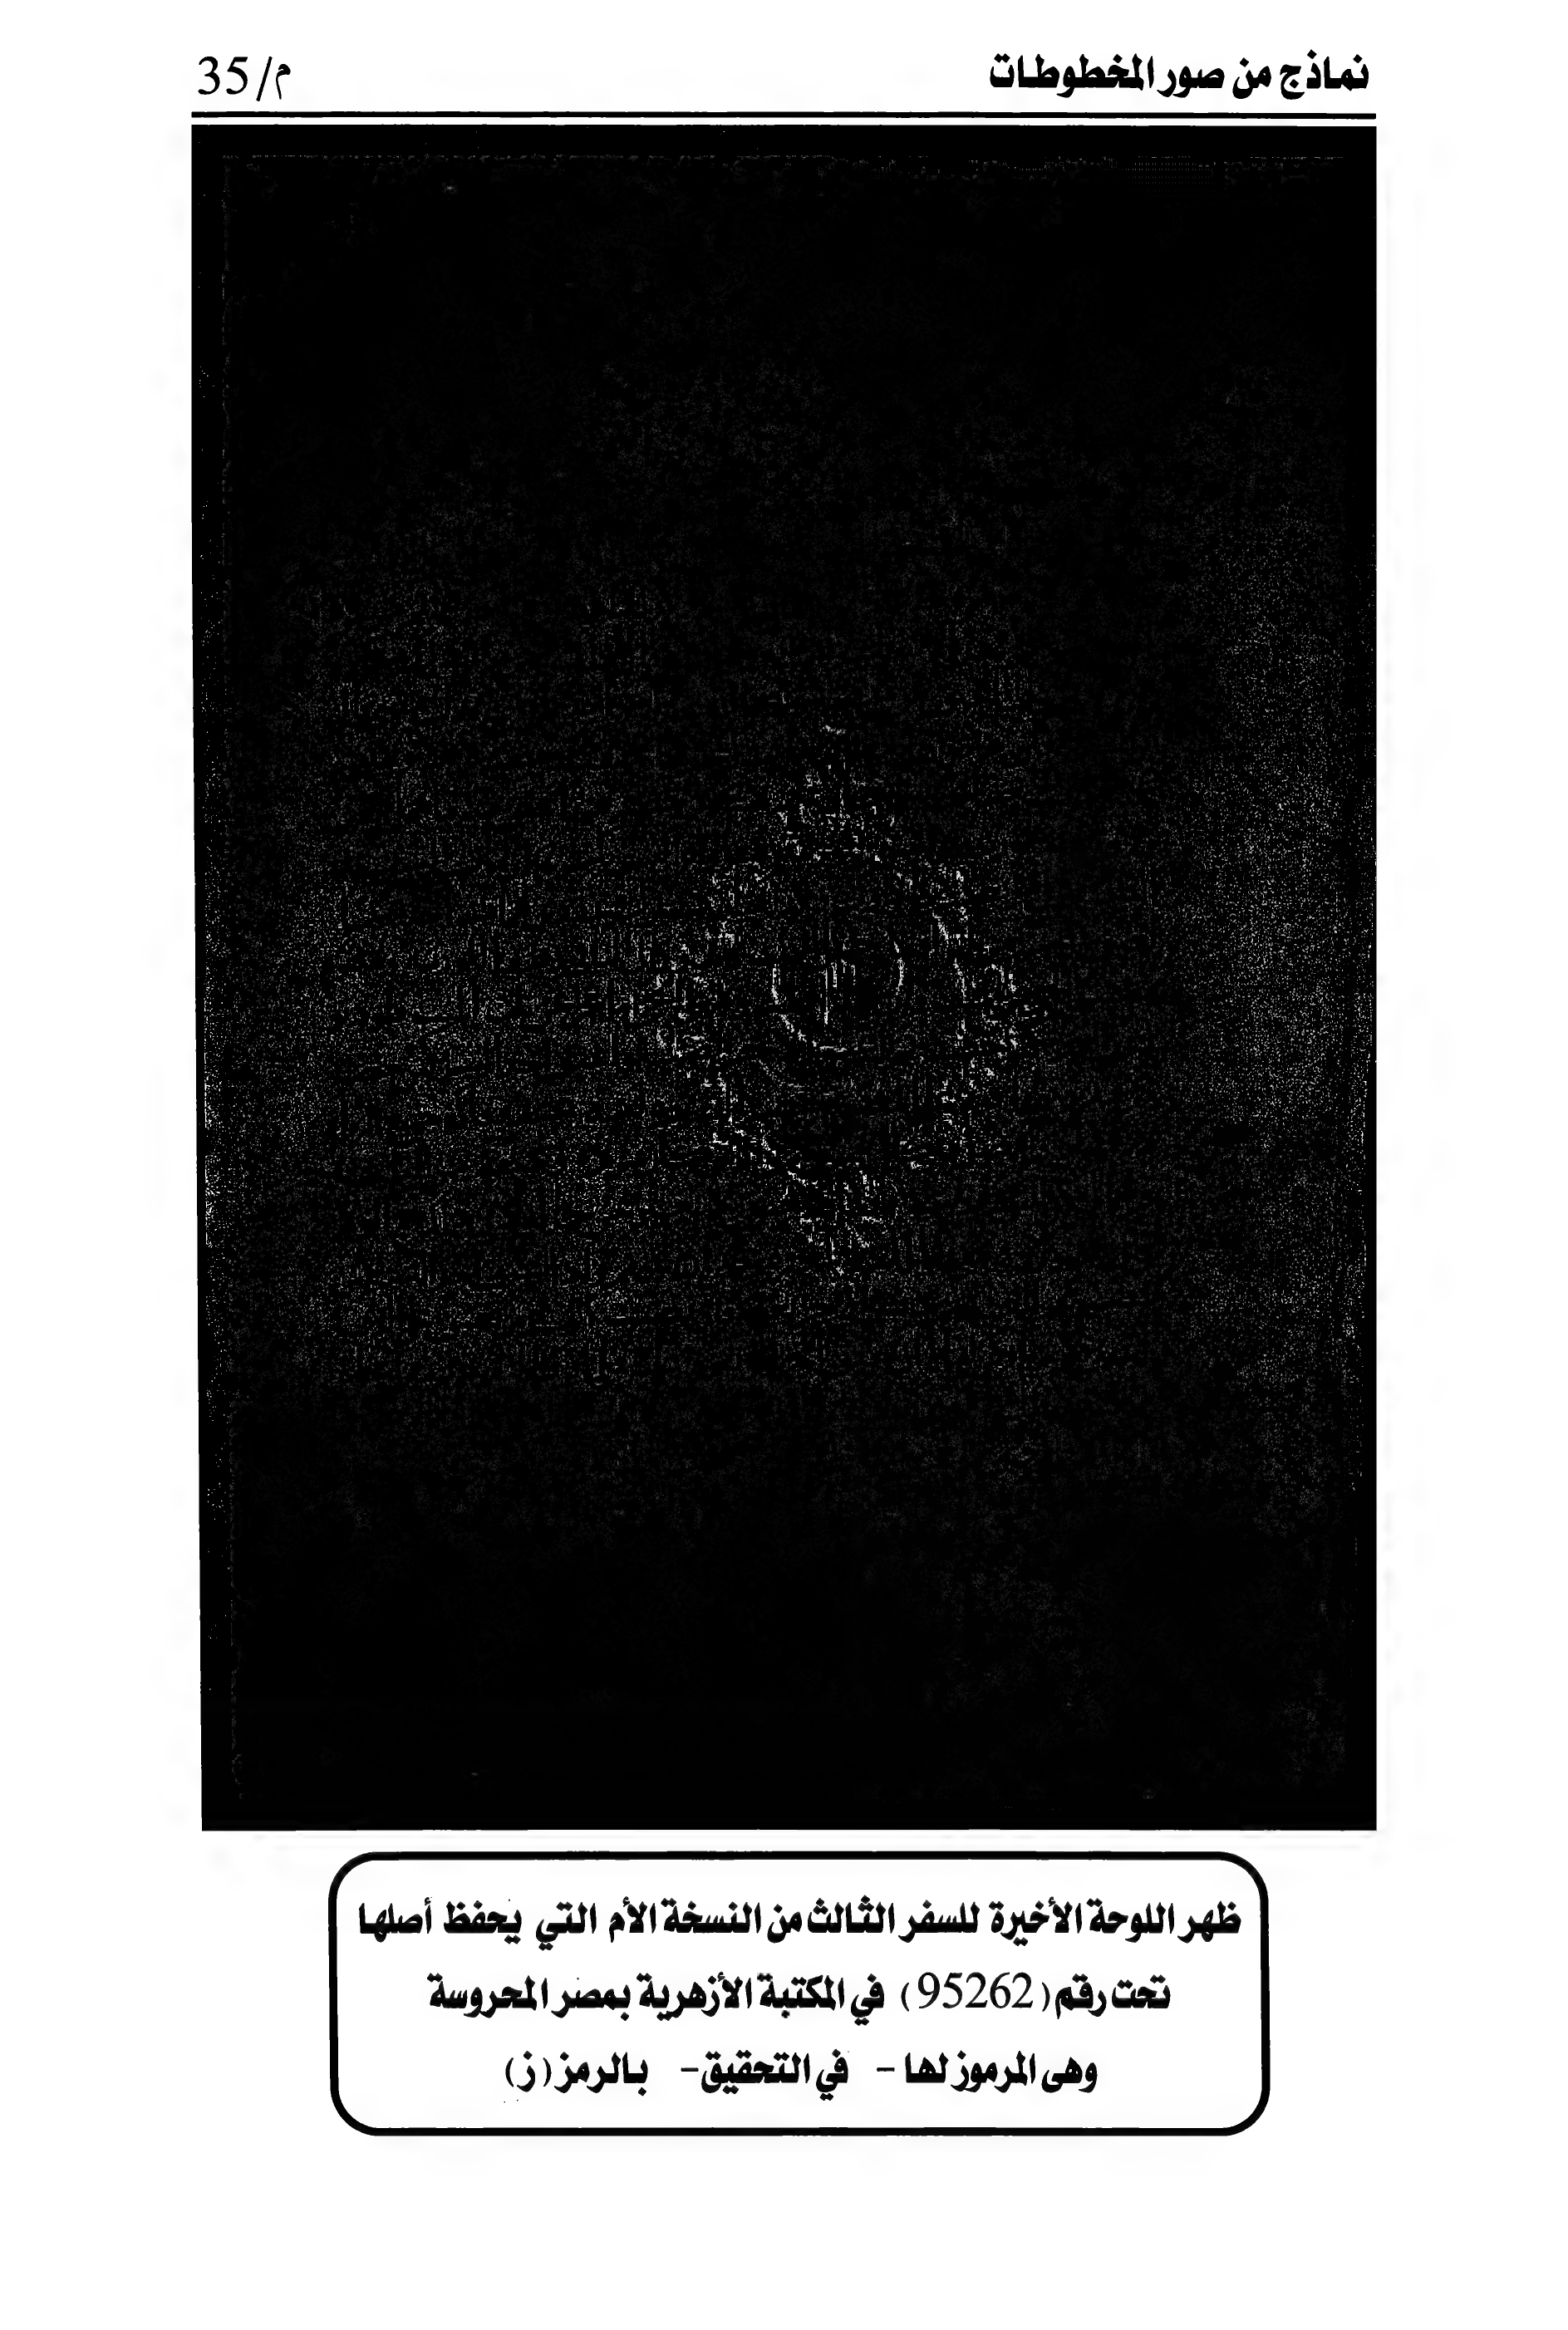 نماذج من صور المخطوطات
م/35
ظهر اللوحة الأخيرة للسفر الثالث من النسخة الأم التي يحفظ أصلها
تحت رقم (95262) في المكتبة الأزهرية بمصر المحروسة
وهى المرموز لها - في التحقيق - بالرمز (ز)